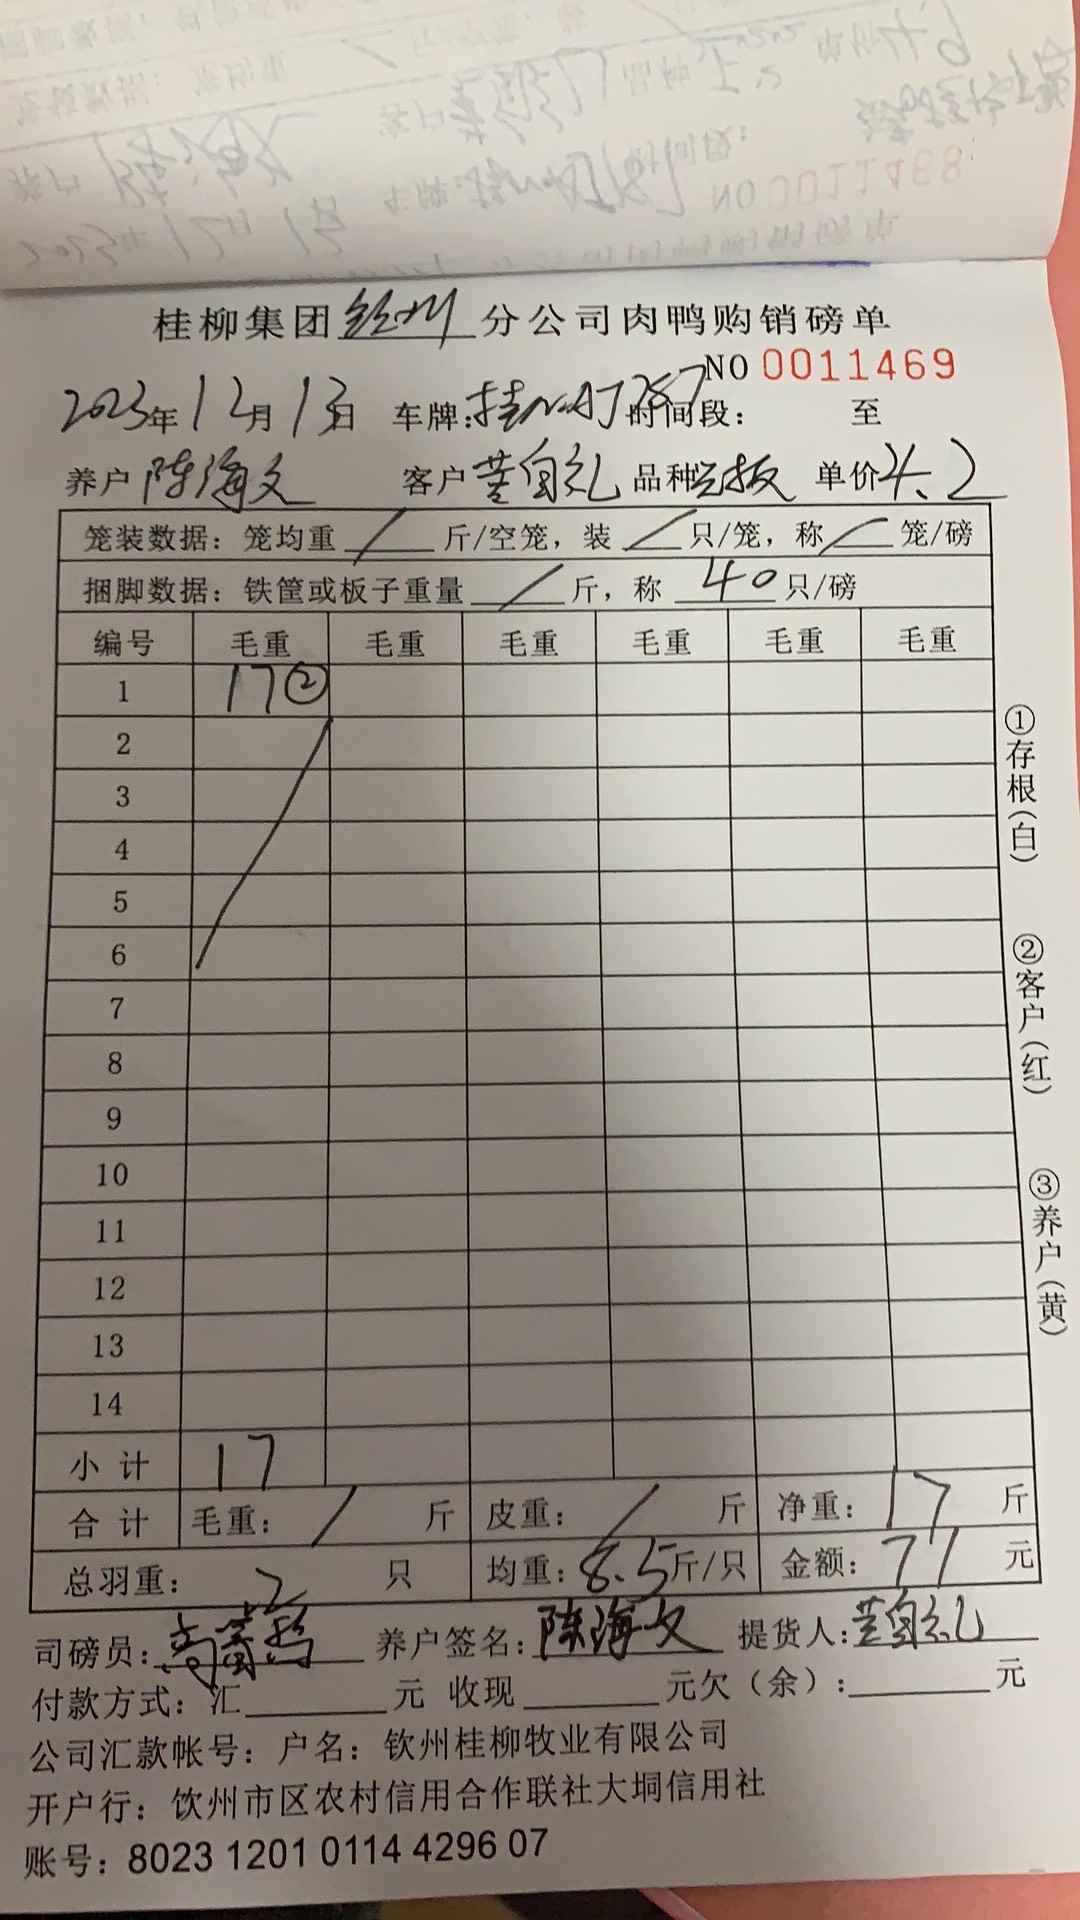 NO 0011468
桂柳集团钦州分公司肉鸭购销磅单
NO 0011469
2023年12月13日 车牌:桂N 时间段: 至
养户 陈海文 客户 黄自礼 品种 单价4.2
笼装数据: 笼均重 / 斤/空笼, 装 / 只/笼, 称 / 笼/磅
捆脚数据: 铁筐或板子重量 / 斤, 称 40 只/磅
编号 毛重 毛重 毛重 毛重 毛重 毛重
1 17②
2
3
4
5
6
7
8
9
10
11
12
13
14
小计 17
合计 毛重: / 斤 皮重: / 斤 净重: 17 斤
总羽重: 2 只 均重: 8.5斤/只 金额: 71 元
司磅员: 养户签名: 陈海文 提货人: 黄自礼
付款方式: 汇 元 收现 元欠(余): 元
公司汇款帐号: 户名: 钦州桂柳牧业有限公司
开户行: 饮州市区农村信用合作联社大垌信用社
账号: 8023 1201 0114 4296 07
①存根(白)
②客户(红)
③养户(黄)